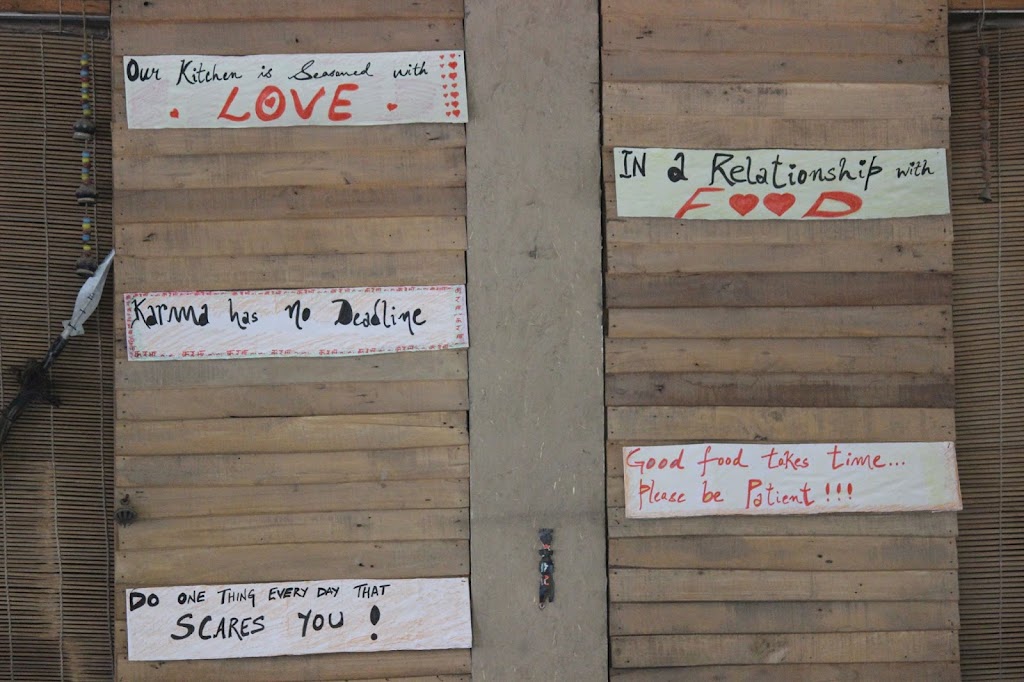 Our Kitchen is Seasoned with
LOVE
IN a Relationship with
FOOD
Karma has no Deadline
Good food takes time...
Please be Patient !!!
DO ONE THING EVERY DAY THAT
SCARES YOU !